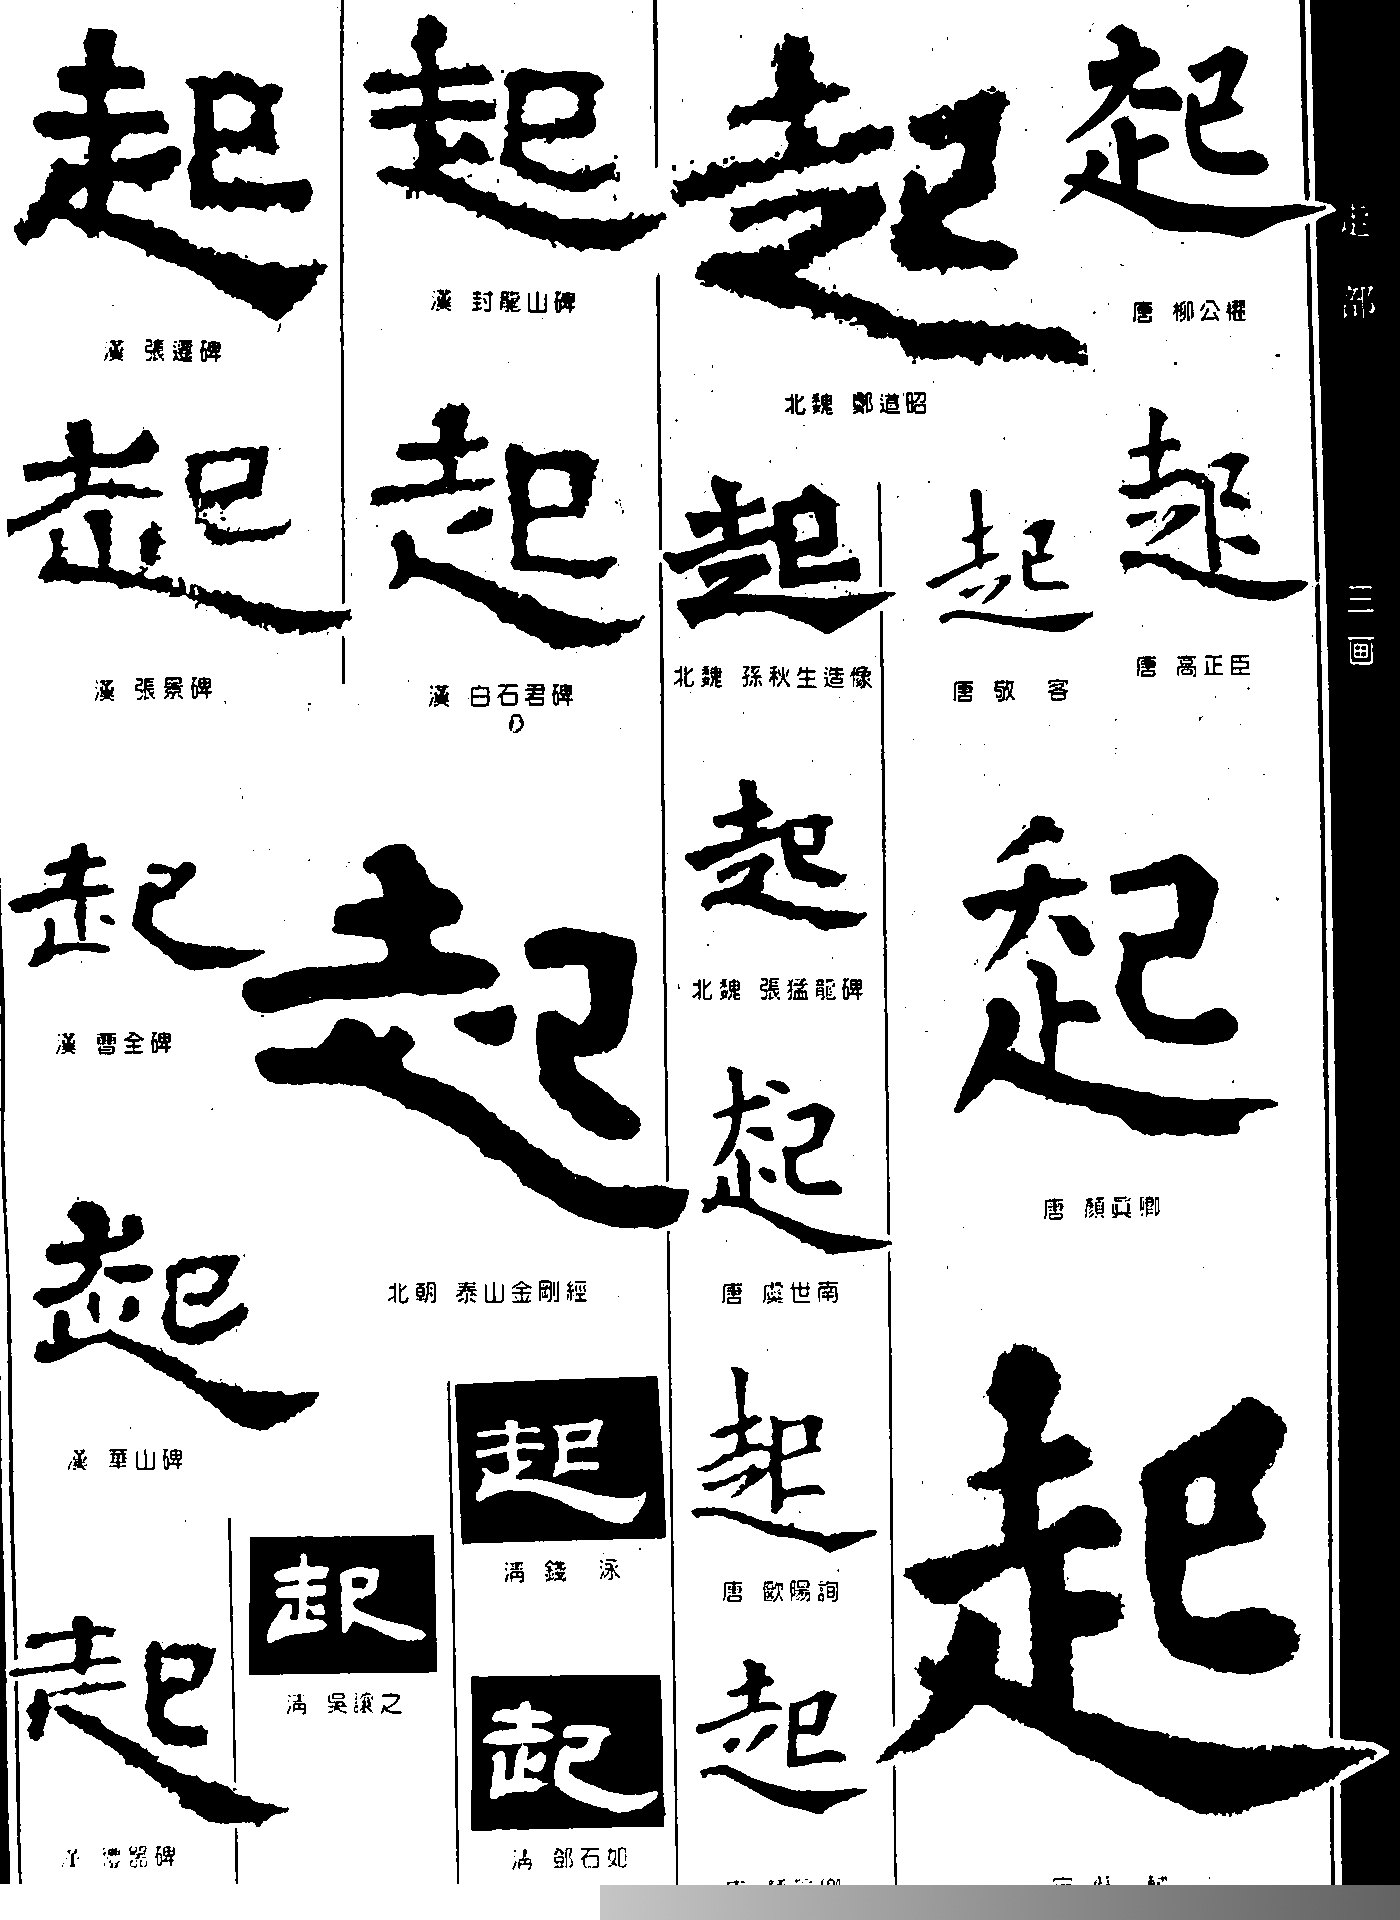 走部
三画
起
唐 柳公權
起
唐 高正臣
起
唐 敬 客
起
唐 顏真卿
起
起
北魏 鄭道昭
起
北魏 孫秋生造像
起
北魏 張猛龍碑
起
唐 虞世南
起
唐 歐陽詢
起
起
漢 封龍山碑
起
漢 白石君碑
起
北朝 泰山金剛經
起
清 錢 泳
起
清 鄧石如
起
漢 張遷碑
起
漢 張景碑
起
漢 曹全碑
起
漢 華山碑
起
漢 禮器碑
起
清 吳讓之